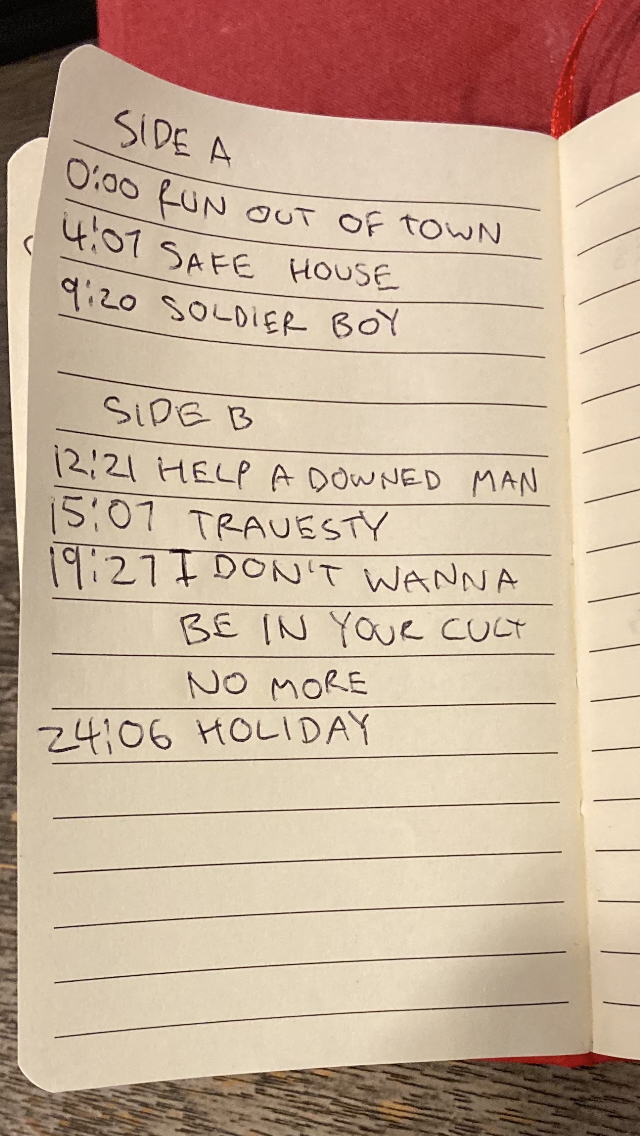 SIDE A
0:00 RUN OUT OF TOWN
4:07 SAFE HOUSE
9:20 SOLDIER BOY
SIDE B
12:21 HELP A DOWNED MAN
15:07 TRAVESTY
19:27 I DON'T WANNA
BE IN YOUR CULT
NO MORE
24:06 HOLIDAY